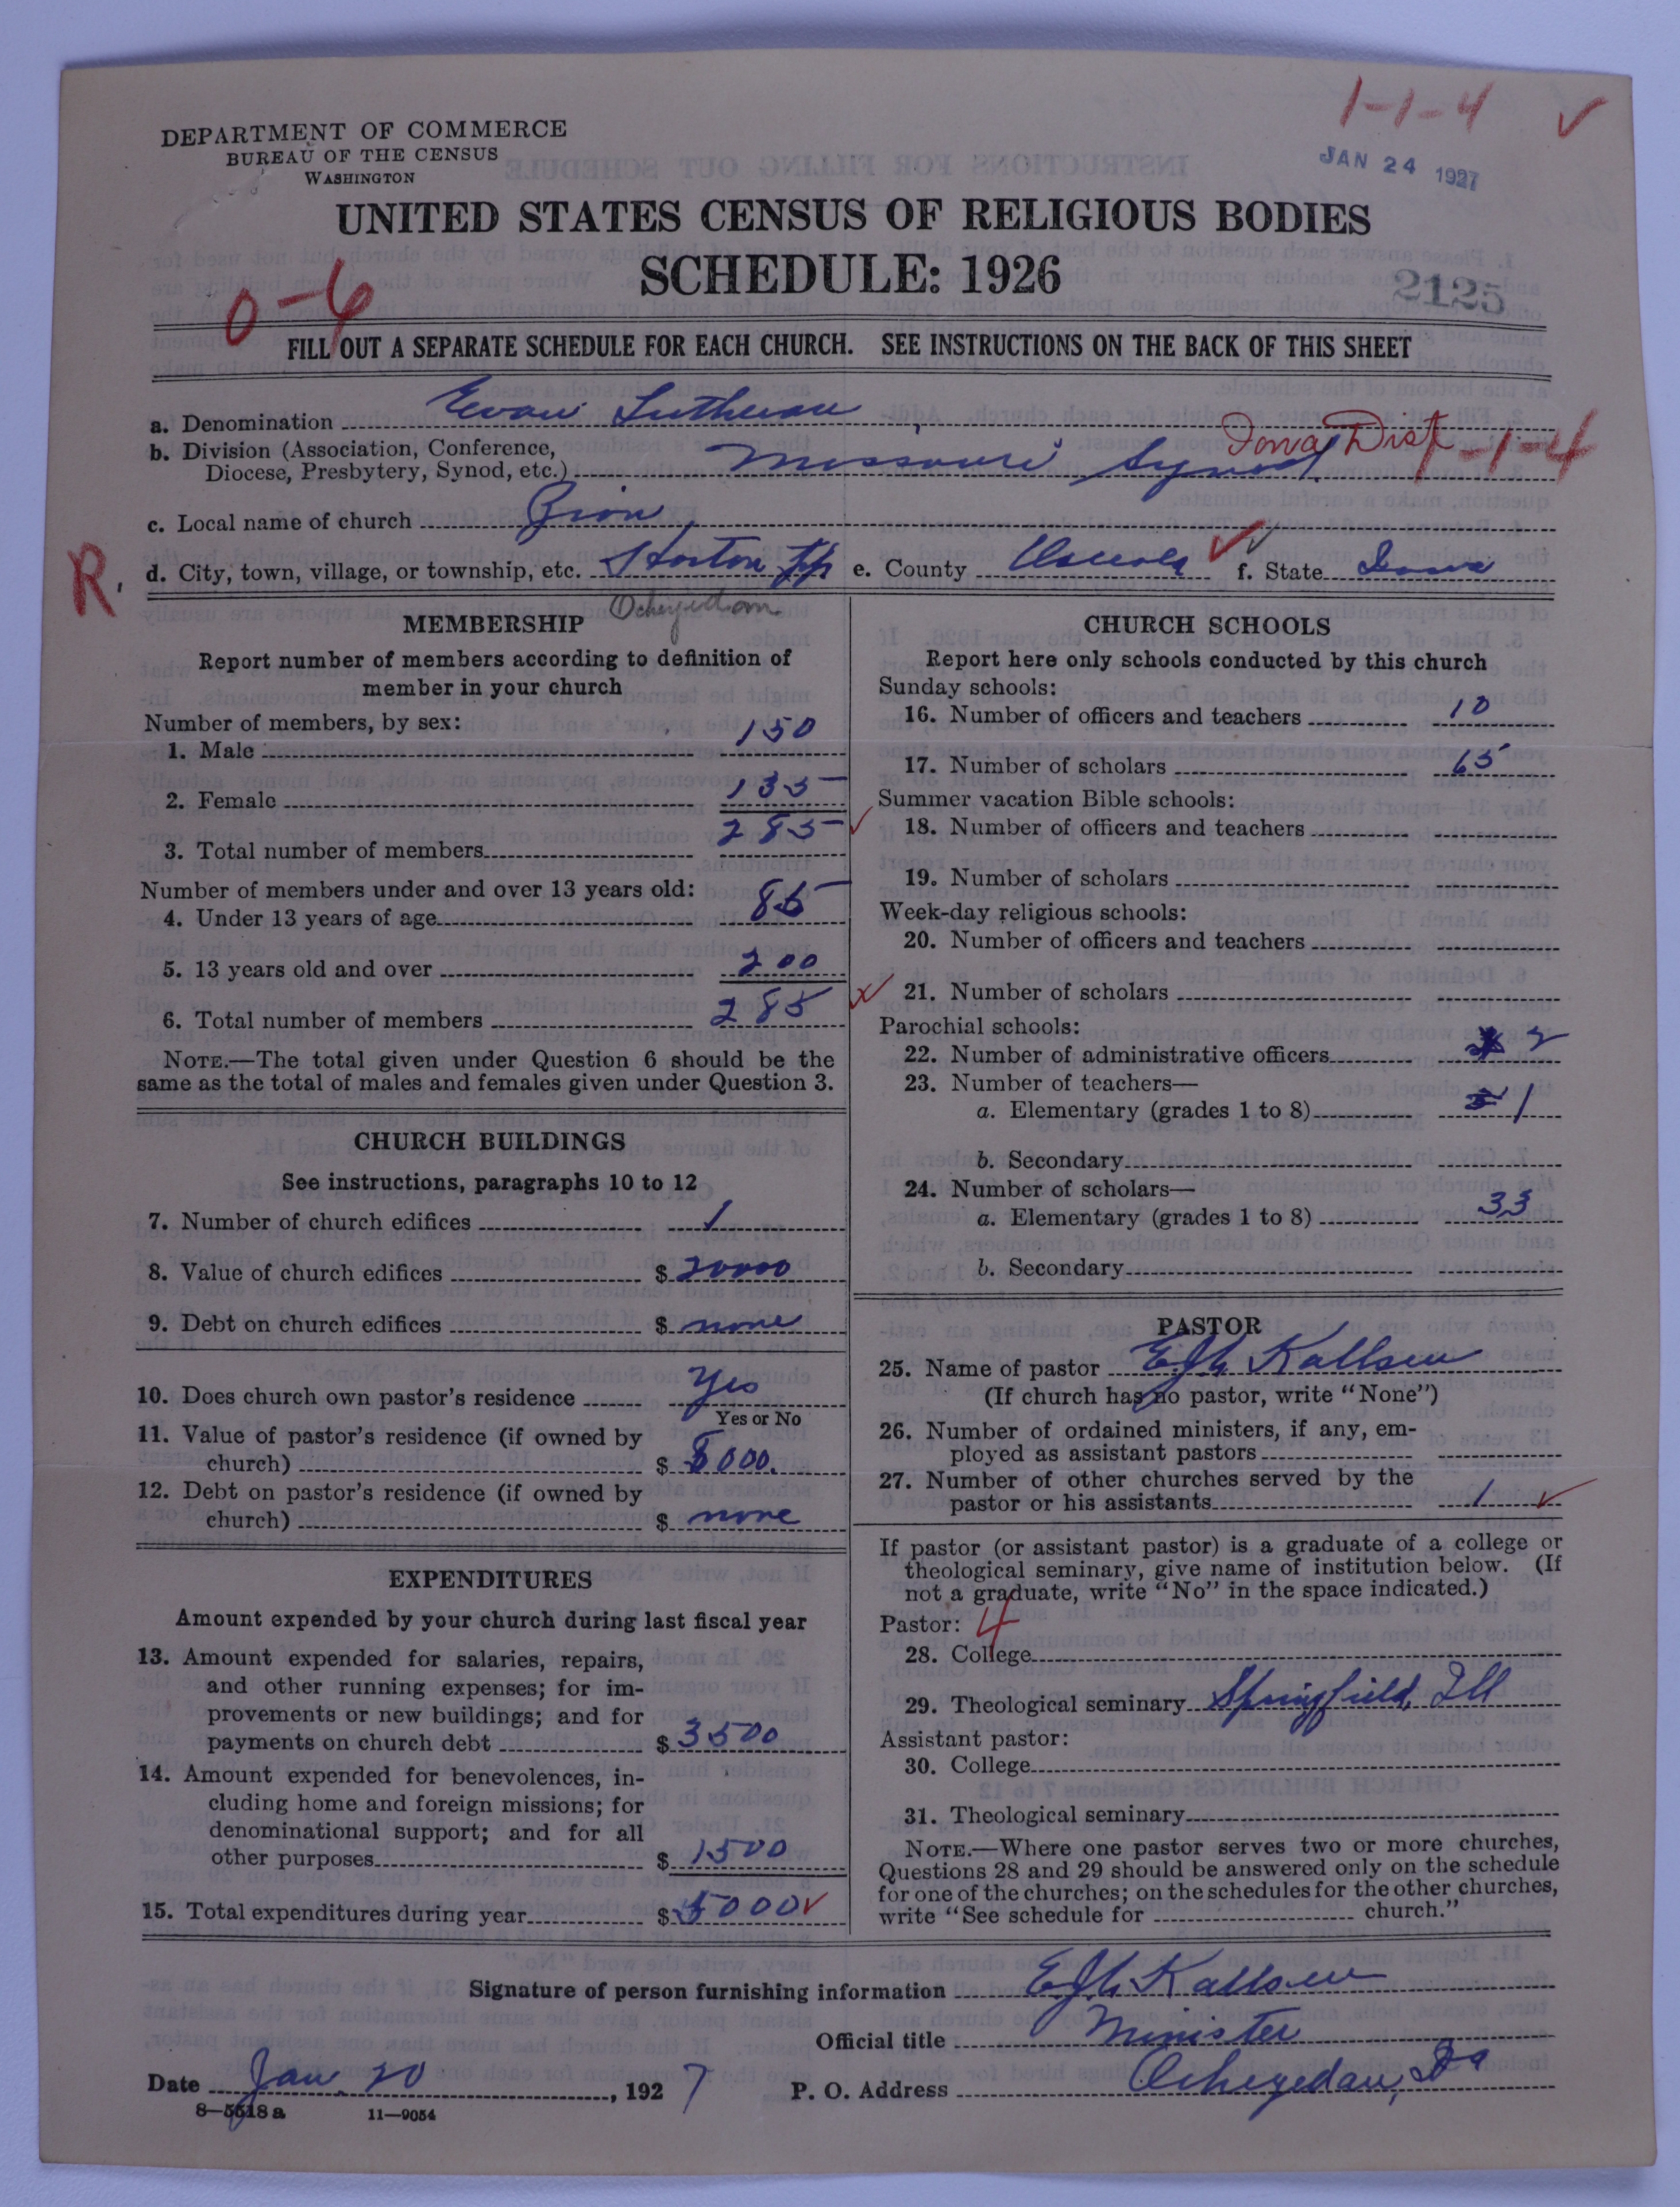 1-1-4 ✓
DEPARTMENT OF COMMERCE
BUREAU OF THE CENSUS
WASHINGTON
JAN 24 1927
UNITED STATES CENSUS OF RELIGIOUS BODIES
SCHEDULE: 1926
2125
0-6
FILL OUT A SEPARATE SCHEDULE FOR EACH CHURCH. SEE INSTRUCTIONS ON THE BACK OF THIS SHEET
a. Denomination Evan Lutheran
b. Division (Association, Conference, Diocese, Presbytery, Synod, etc.) Missouri Synod Iowa Dist -1-4
c. Local name of church Zion
R. d. City, town, village, or township, etc. Horton Twp e. County Osceola f. State Iowa
Ocheyedan
MEMBERSHIP
Report number of members according to definition of
member in your church
Number of members, by sex:
1. Male 150
2. Female 135
3. Total number of members 285
Number of members under and over 13 years old:
4. Under 13 years of age 85
5. 13 years old and over 200
6. Total number of members 285
NOTE.—The total given under Question 6 should be the
same as the total of males and females given under Question 3.
CHURCH BUILDINGS
See instructions, paragraphs 10 to 12
7. Number of church edifices 1
8. Value of church edifices $ 20000
9. Debt on church edifices $ none
10. Does church own pastor's residence Yes
Yes or No
11. Value of pastor's residence (if owned by
church) $ 5000.
12. Debt on pastor's residence (if owned by
church) $ none
EXPENDITURES
Amount expended by your church during last fiscal year
13. Amount expended for salaries, repairs,
and other running expenses; for im-
provements or new buildings; and for
payments on church debt $ 3500
14. Amount expended for benevolences, in-
cluding home and foreign missions; for
denominational support; and for all
other purposes $ 1500
15. Total expenditures during year $ 5000
CHURCH SCHOOLS
Report here only schools conducted by this church
Sunday schools:
16. Number of officers and teachers 10
17. Number of scholars 65
Summer vacation Bible schools:
18. Number of officers and teachers
19. Number of scholars
Week-day religious schools:
20. Number of officers and teachers
21. Number of scholars
Parochial schools:
22. Number of administrative officers 2
23. Number of teachers—
a. Elementary (grades 1 to 8) 1
b. Secondary
24. Number of scholars—
a. Elementary (grades 1 to 8) 33
b. Secondary
PASTOR
25. Name of pastor EJh Kallsen
(If church has no pastor, write "None")
26. Number of ordained ministers, if any, em-
ployed as assistant pastors
27. Number of other churches served by the
pastor or his assistants 1
If pastor (or assistant pastor) is a graduate of a college or
theological seminary, give name of institution below. (If
not a graduate, write "No" in the space indicated.)
Pastor: 4
28. College
29. Theological seminary Springfield, Ill
Assistant pastor:
30. College
31. Theological seminary
NOTE.—Where one pastor serves two or more churches,
Questions 28 and 29 should be answered only on the schedule
for one of the churches; on the schedules for the other churches,
write "See schedule for church."
Signature of person furnishing information EJh Kallsen
Official title Minister
Date Jan. 20, 1927 P. O. Address Ocheyedan, Ia
8—5518 a 11—9054